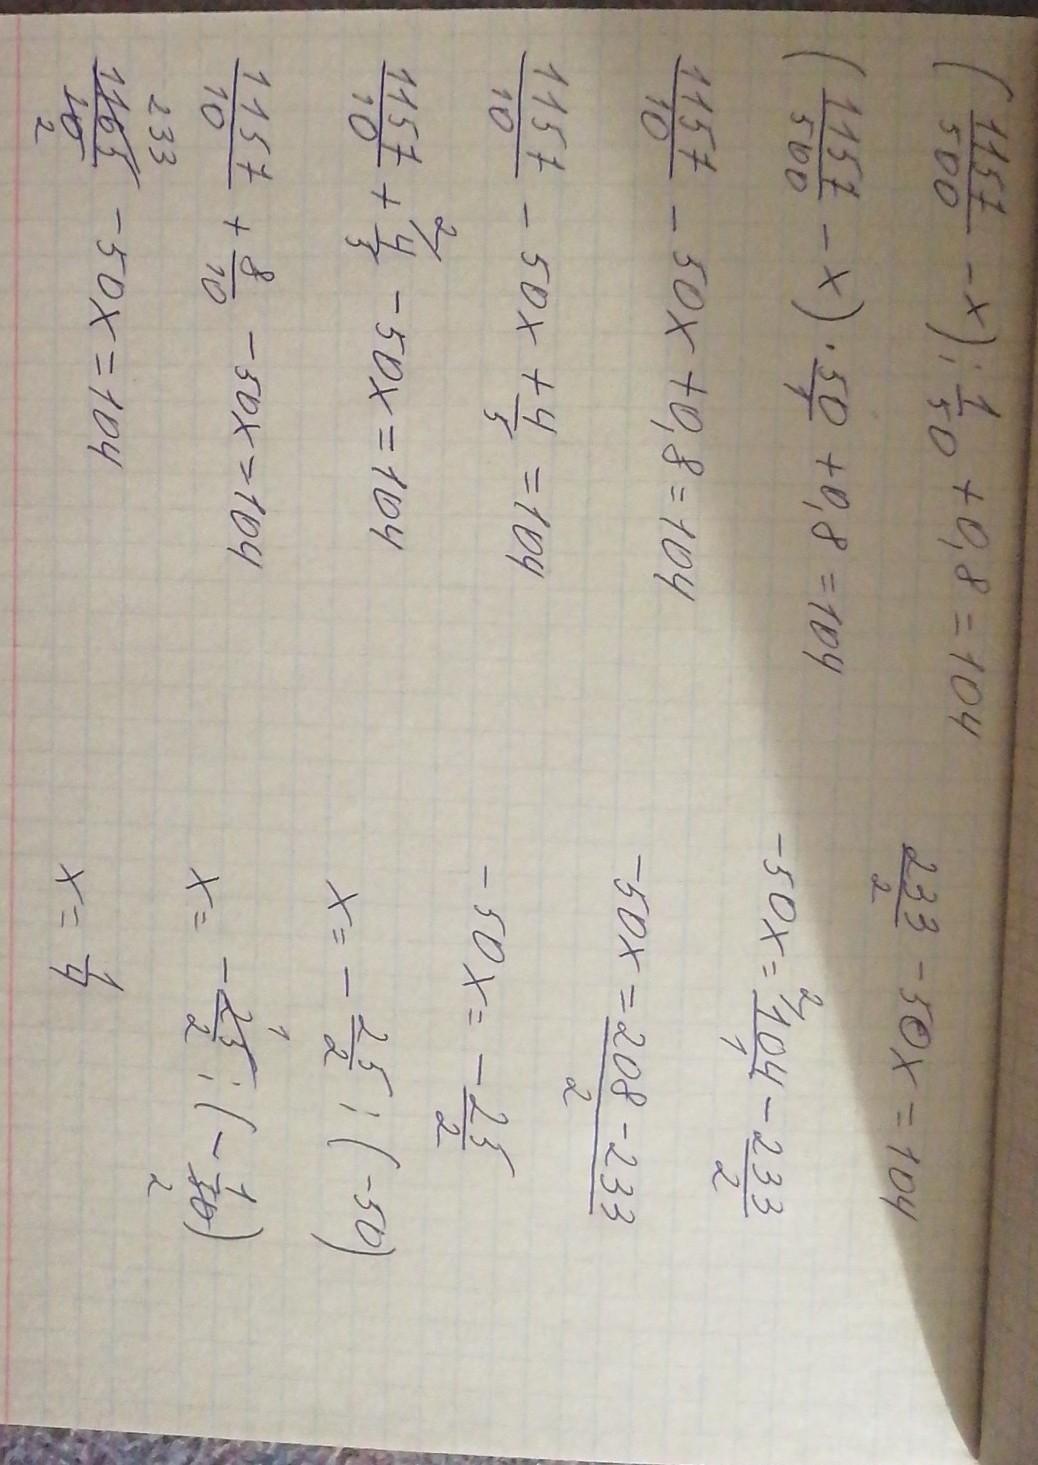 (1157/500 - x) : 1/50 + 0,8 = 104
(1157/500 - x) · 50/1 + 0,8 = 104
1157/10 - 50x + 0,8 = 104
1157/10 - 50x + 4/5 = 104
1157/10 + 4/5 2/ - 50x = 104
1157/10 + 8/10 - 50x = 104
233
1165/10 - 50x = 104
2
233/2 - 50x = 104
-50x = 2/ 104/1 - 233/2
-50x = (208 - 233)/2
-50x = - 25/2
x = - 25/2 : (-50)
1
x = - 25/2 : (- 1/50)
2
x = 1/4